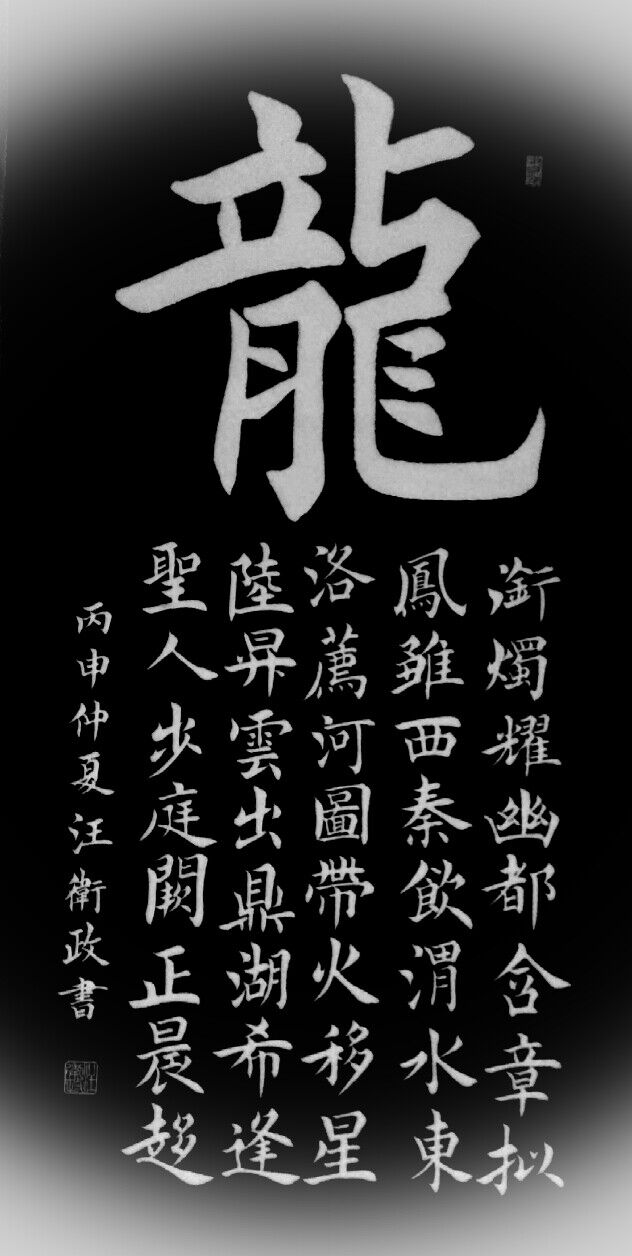 龍
銜燭耀幽都含章拟
鳳雛西秦飲渭水東
洛薦河圖帶火移星
陸昇雲出鼎湖希逢
聖人步庭闕正晨趍
丙申仲夏汪衛政書